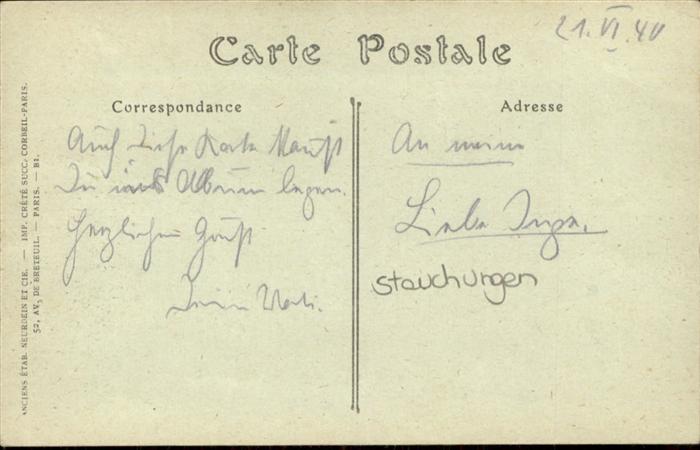 Carte Postale
21.VI.40
Correspondance
Auch diese Karte kannst
Du ins Album legen.
Herzlichen Gruß
Dein
Adresse
An meine
Liebe Inga.
stauchungen
ANCIENS ÉTAB. NEURDEIN ET CIE. — IMP. CRÉTÉ SUCC. CORBEIL-PARIS.
52, AV. DE BRETEUIL. — PARIS. — B1.